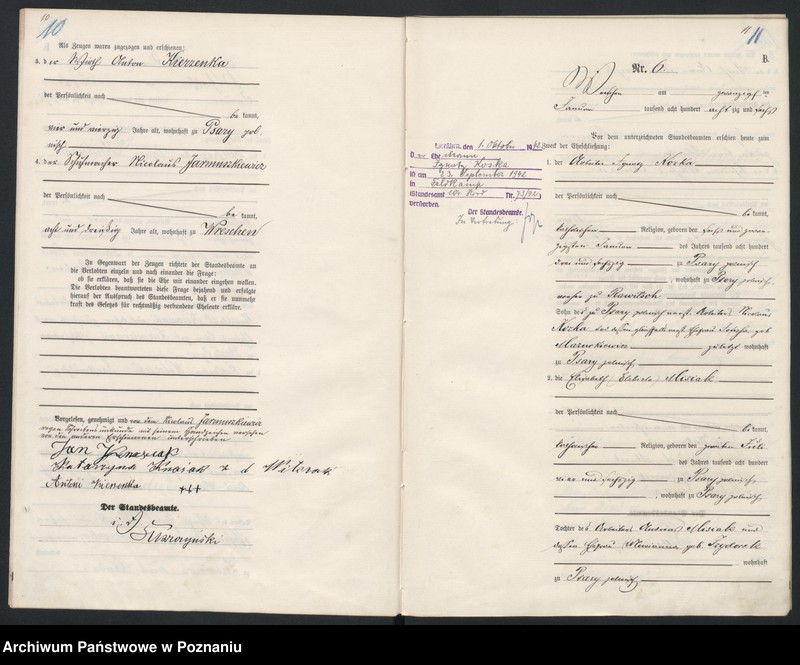 10
10
Als Zeugen waren zugezogen und erschienen:
3. der Wirth Anton Kierzenka
der Persönlichkeit nach
be kannt,
vier und vierzig Jahre alt, wohnhaft zu Psary pol-
nisch
4. der Schuhmacher Nicolaus Jarmuszkiewicz
der Persönlichkeit nach
be kannt,
acht und dreißig Jahre alt, wohnhaft zu Wreschen
In Gegenwart der Zeugen richtete der Standesbeamte an
die Verlobten einzeln und nach einander die Frage:
ob sie erklären, daß sie die Ehe mit einander eingehen wollen.
Die Verlobten beantworteten diese Frage bejahend und erfolgte
hierauf der Ausspruch des Standesbeamten, daß er sie nunmehr
kraft des Gesetzes für rechtmäßig verbundene Eheleute erkläre.
Vorgelesen, genehmigt und von dem Nicolaus Jarmuszkiewicz
wegen Schreibensunkunde mit seinem Handzeichen versehen
von den anderen Erschienenen unterschrieben
Jan
Katarzyna
Antoni
+++
Der Standesbeamte.
11
11
B.
Nr. 6.
Wreschen am zwanzigsten
Januar tausend acht hundert acht zig und sechs
Vor dem unterzeichneten Standesbeamten erschienen heute zum
Zweck der Eheschließung:
1. der Arbeiter Ignatz Kozka
der Persönlichkeit nach
be kannt,
katholischer Religion, geboren den sechs und zwan-
zigsten Januar des Jahres tausend acht hundert
drei und sechzig zu Psary polnisch
, wohnhaft zu Psary polnisch,
vorher zu Rawitsch
Sohn des zu Psary polnisch verst. Arbeiters Nicolaus
Kozka und dessen Ehefrau geb.
zuletzt wohnhaft
zu Psary polnisch
2. die Elisabeth Misiak
der Persönlichkeit nach
be kannt,
katholischer Religion, geboren den zweiten Juli
des Jahres tausend acht hundert
vier und sechzig zu Psary polnisch,
, wohnhaft zu Psary polnisch,
Tochter des Arbeiters Andreas Misiak und
dessen Ehefrau Marianna geb.
wohnhaft
zu Psary polnisch
Wreschen, den 1. Oktober 1942
Der Ehemann
Ignatz Koska
ist am 23. September 1942
in Feldkamp
(Standesamt Nord Nr. 73/42)
verstorben.
Der Standesbeamte.
In Vertretung
Archiwum Państwowe w Poznaniu